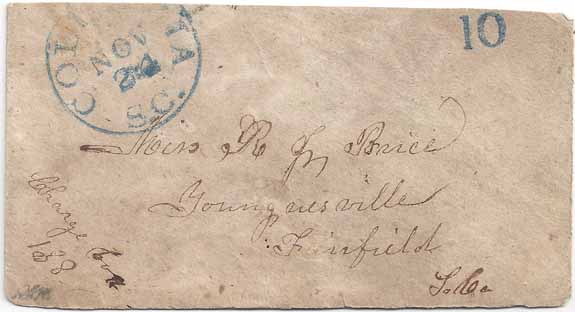 COLUMBIA
NOV
24
S.C.
10
Miss R J Brice
Younguesville
Fairfield
So Ca
Charge Box
138